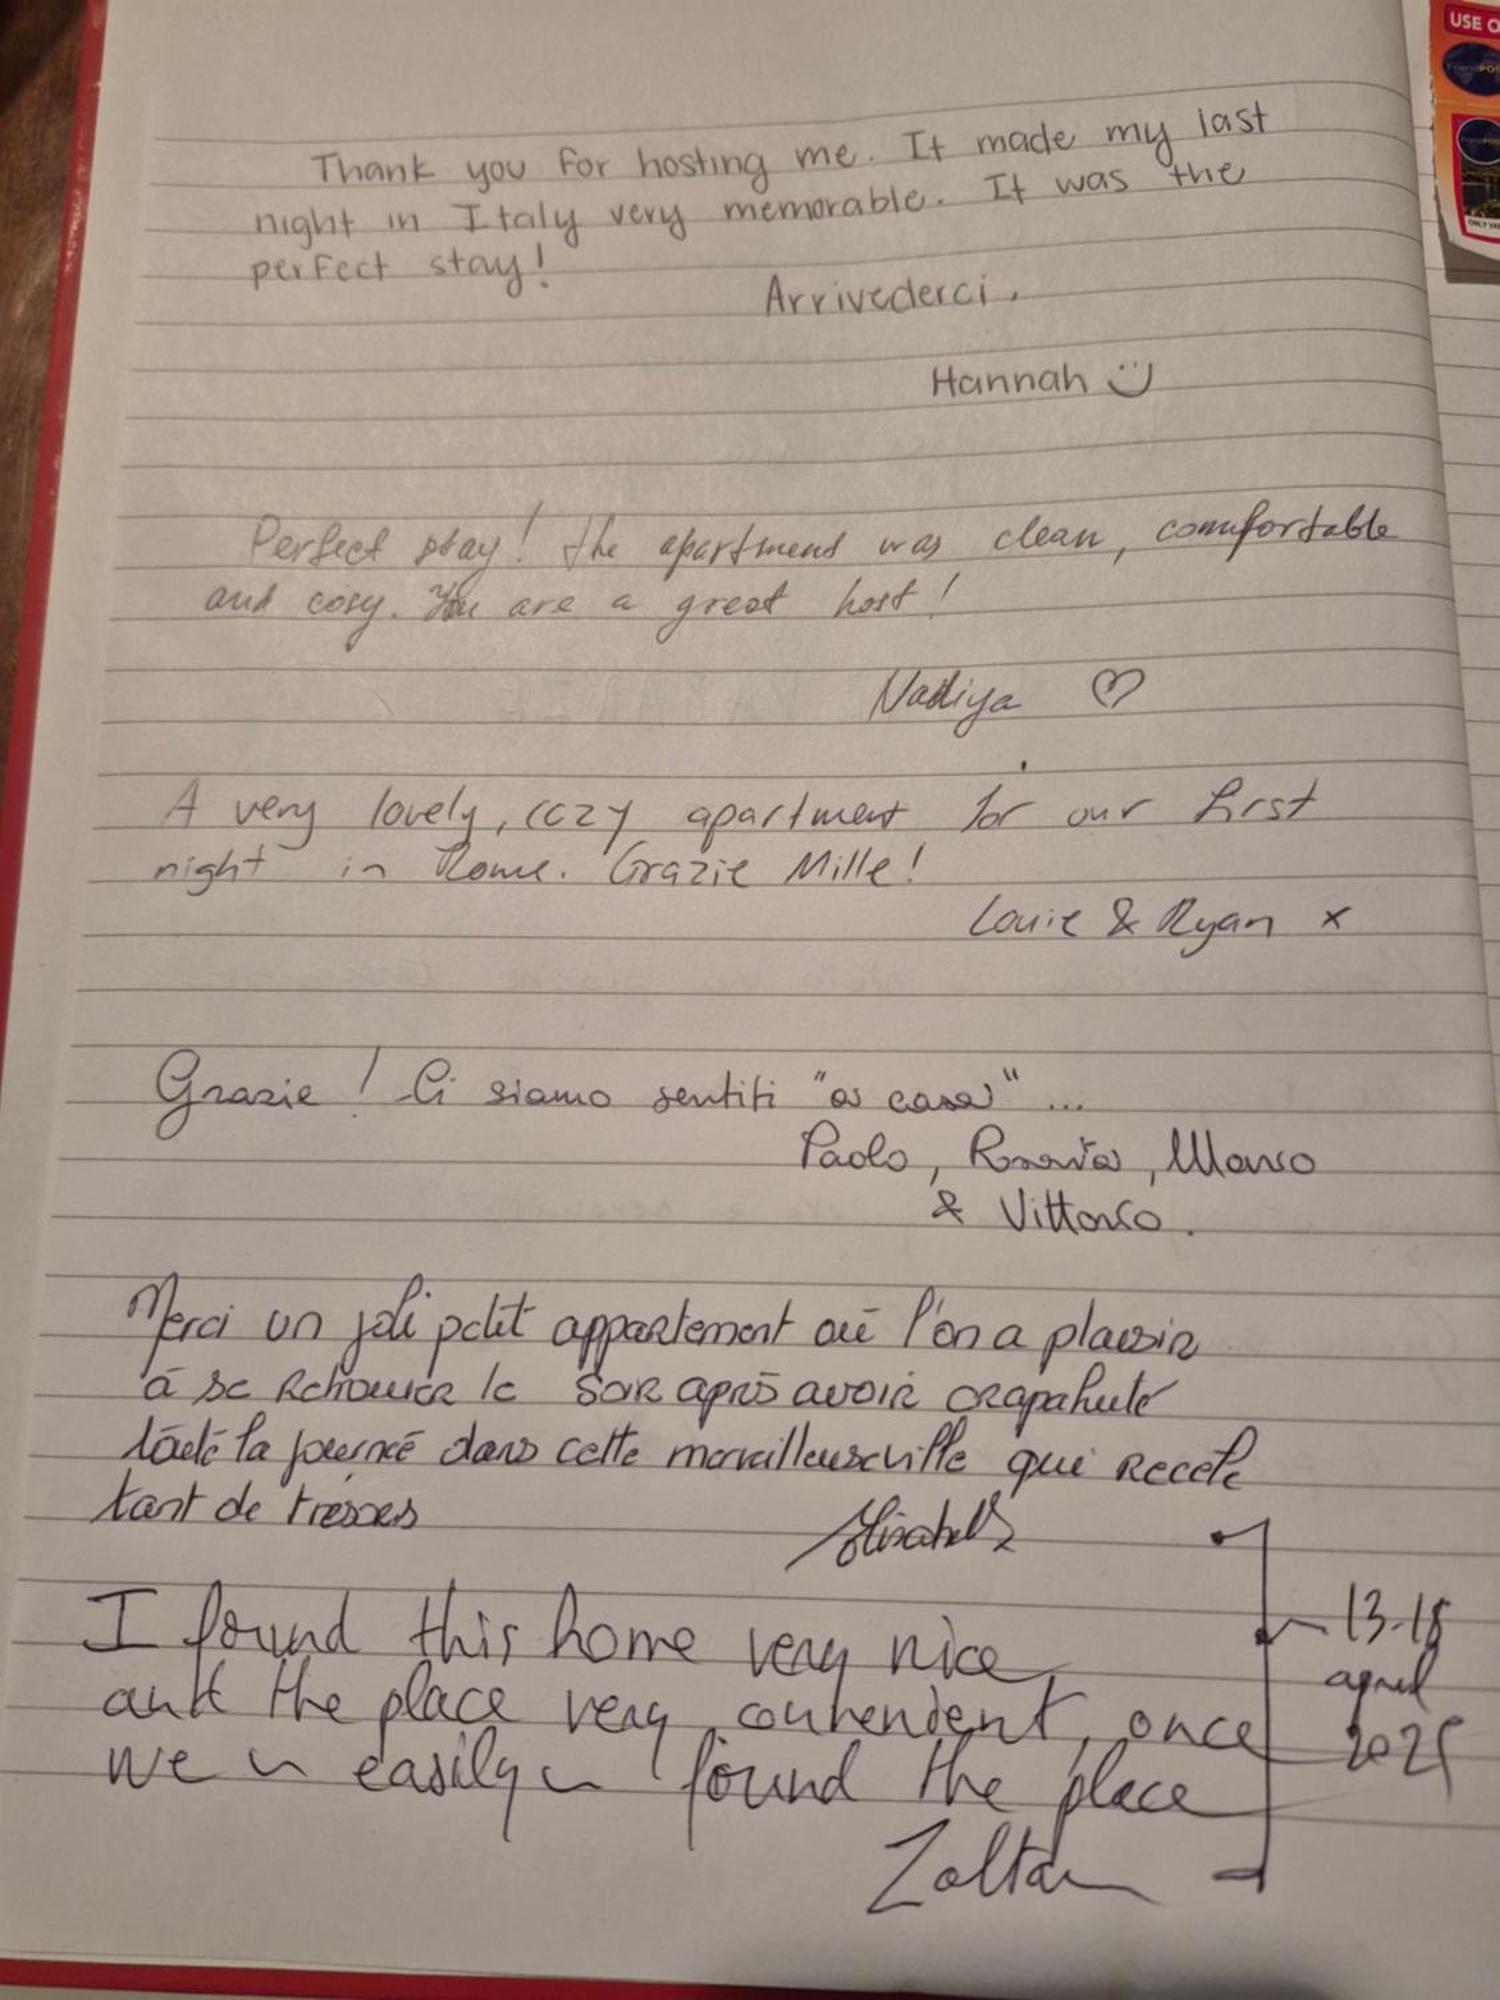 USE O
Thank you for hosting me. It made my last
night in Italy very memorable. It was the
perfect stay!
Arrivederci.
Hannah
Perfect stay! The apartment was clean, comufortable
and cosy. You are a great host!
Nadiya ♡
A very lovely, cozy apartment for our first
night in Rome. Grazie Mille!
Louie & Ryan x
Grazie! Ci siamo sentiti "a casa" ...
Paolo, Marco
& Vittorio.
Merci un joli petit appartement où l'on a plaisir
à se retrouver le soir après avoir crapahuté
toute la journée dans cette merveilleuse ville qui recele
tant de tresors
I found this home very nice
and the place very convenient, once
we easily found the place
Zoltan
13-18
april
2025